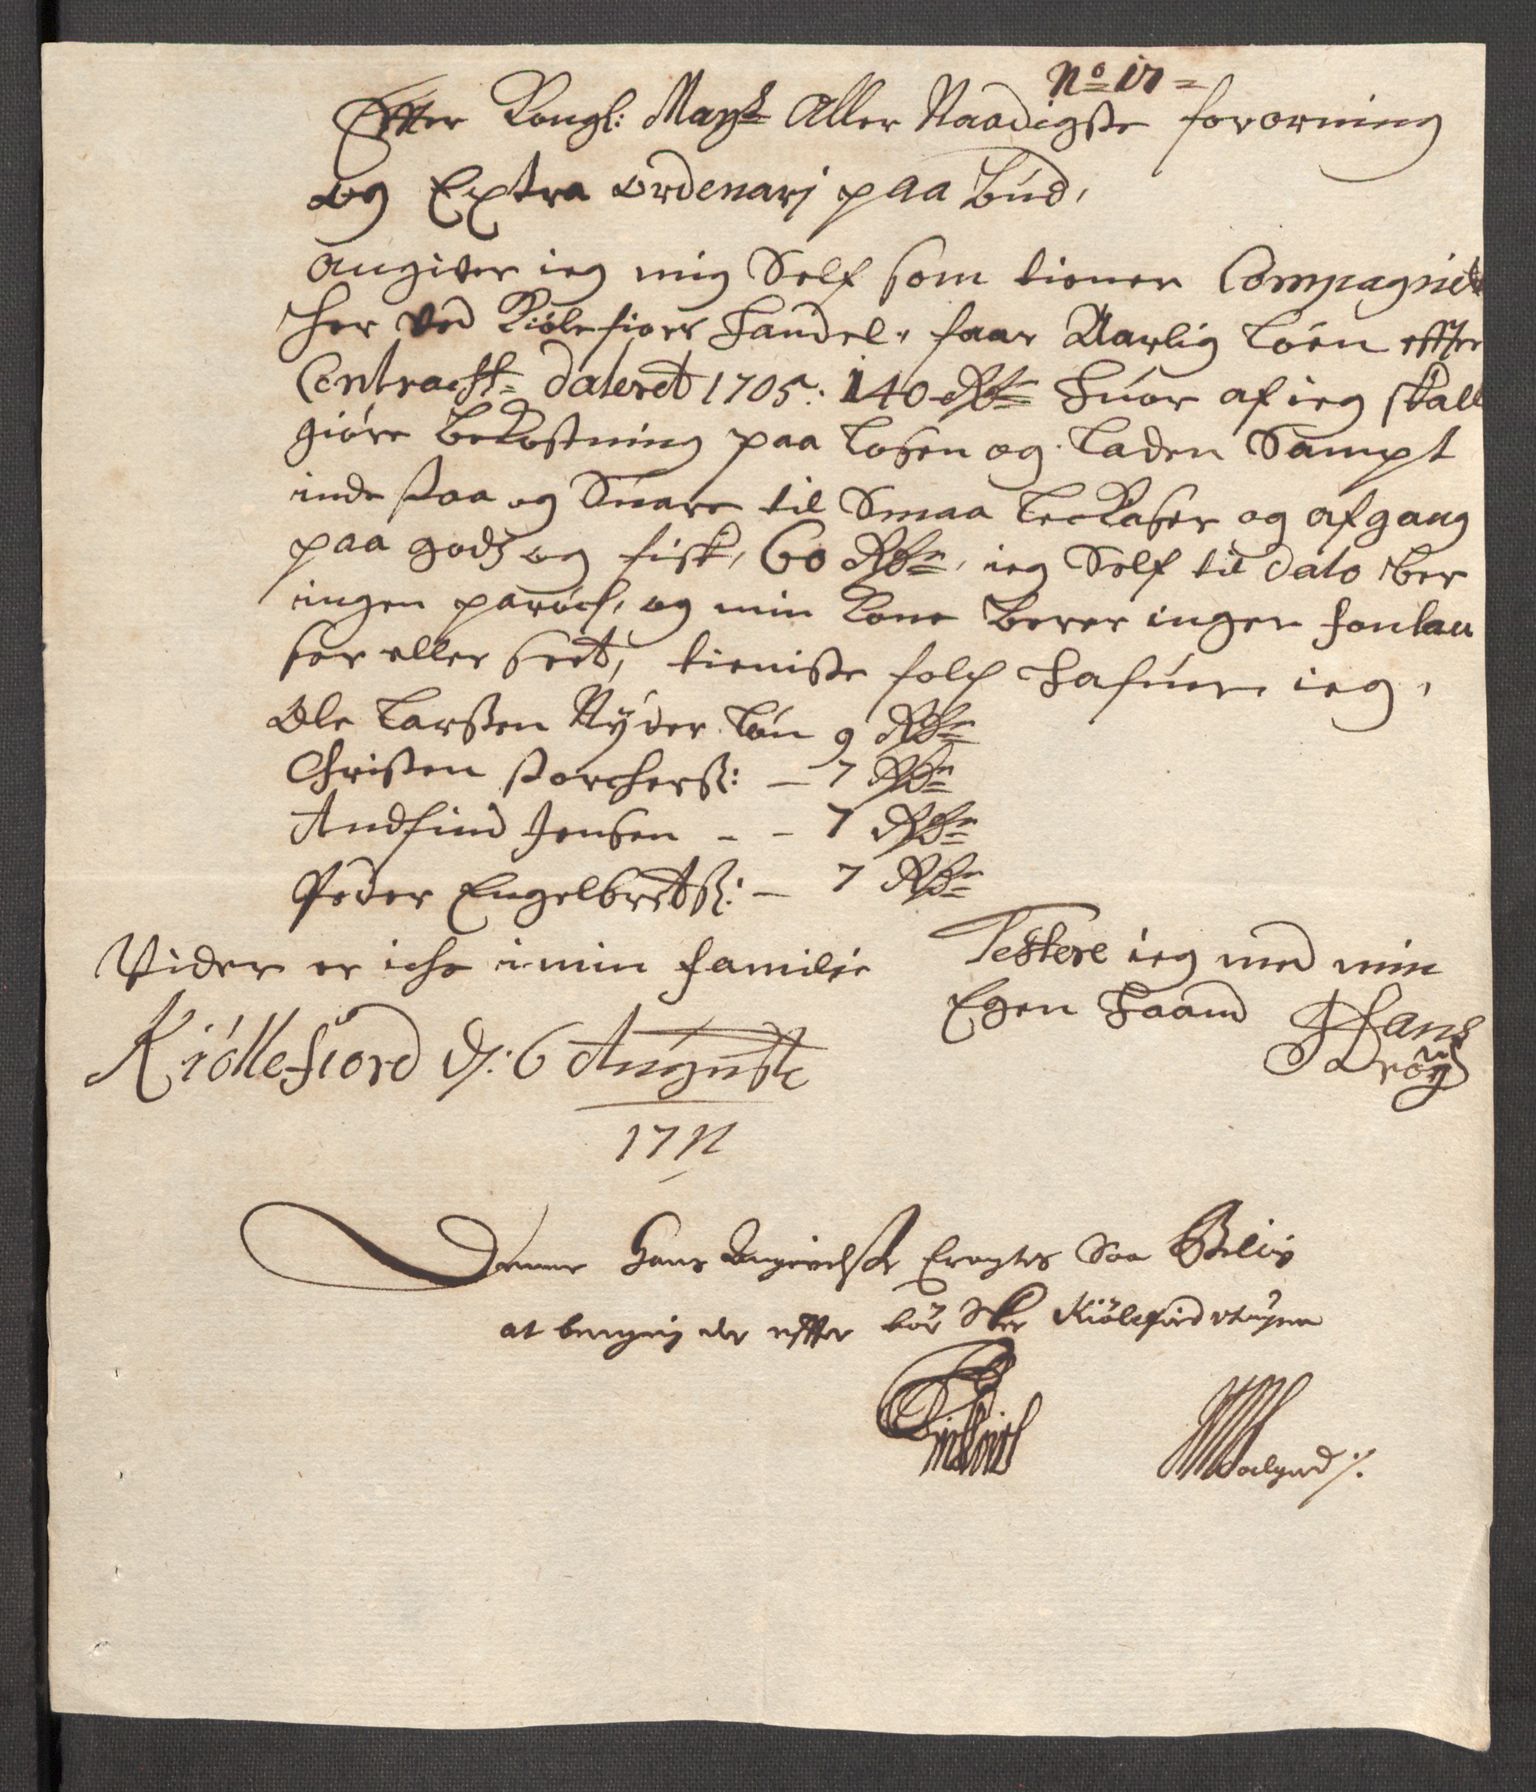 No 17 =
Effter Kongl: Mayst Aller Naadigste fororning
og Extra ordenarj paa bud,
angiver ieg mig Self som tiener Compagniet
her ved Kiølefiors Handel, faar Aarlig Løen effter
Contracht dateret 1705: 140 Rdr huor af ieg skall
giøre bekostning paa Losen og Laden Sampt
inde staa og Suare til Smaa Leckaser og afgang
paa godz og fisk, 60 Rdr, ieg Self til dato ber
ingen paroch, og min Kone berer ingen fontau
ser eller sæt, tieniste folch hafuer ieg,
Ole Larssen Nyder Løn 9 Rdr
Christen storcherss: — 7 Rdr
Andfind Jensen - - 7 Rdr
Peder Engelbretss: — 7 Rdr
Vider er iche i min familie
Testere ieg med min
Egen Haand
Hans
Krøg
Kiöllefiord d: 6 Auguste
1711
Denne Hans Angivelse Eragtes Saa Billig
at der effter bör Skee Kiölefiord